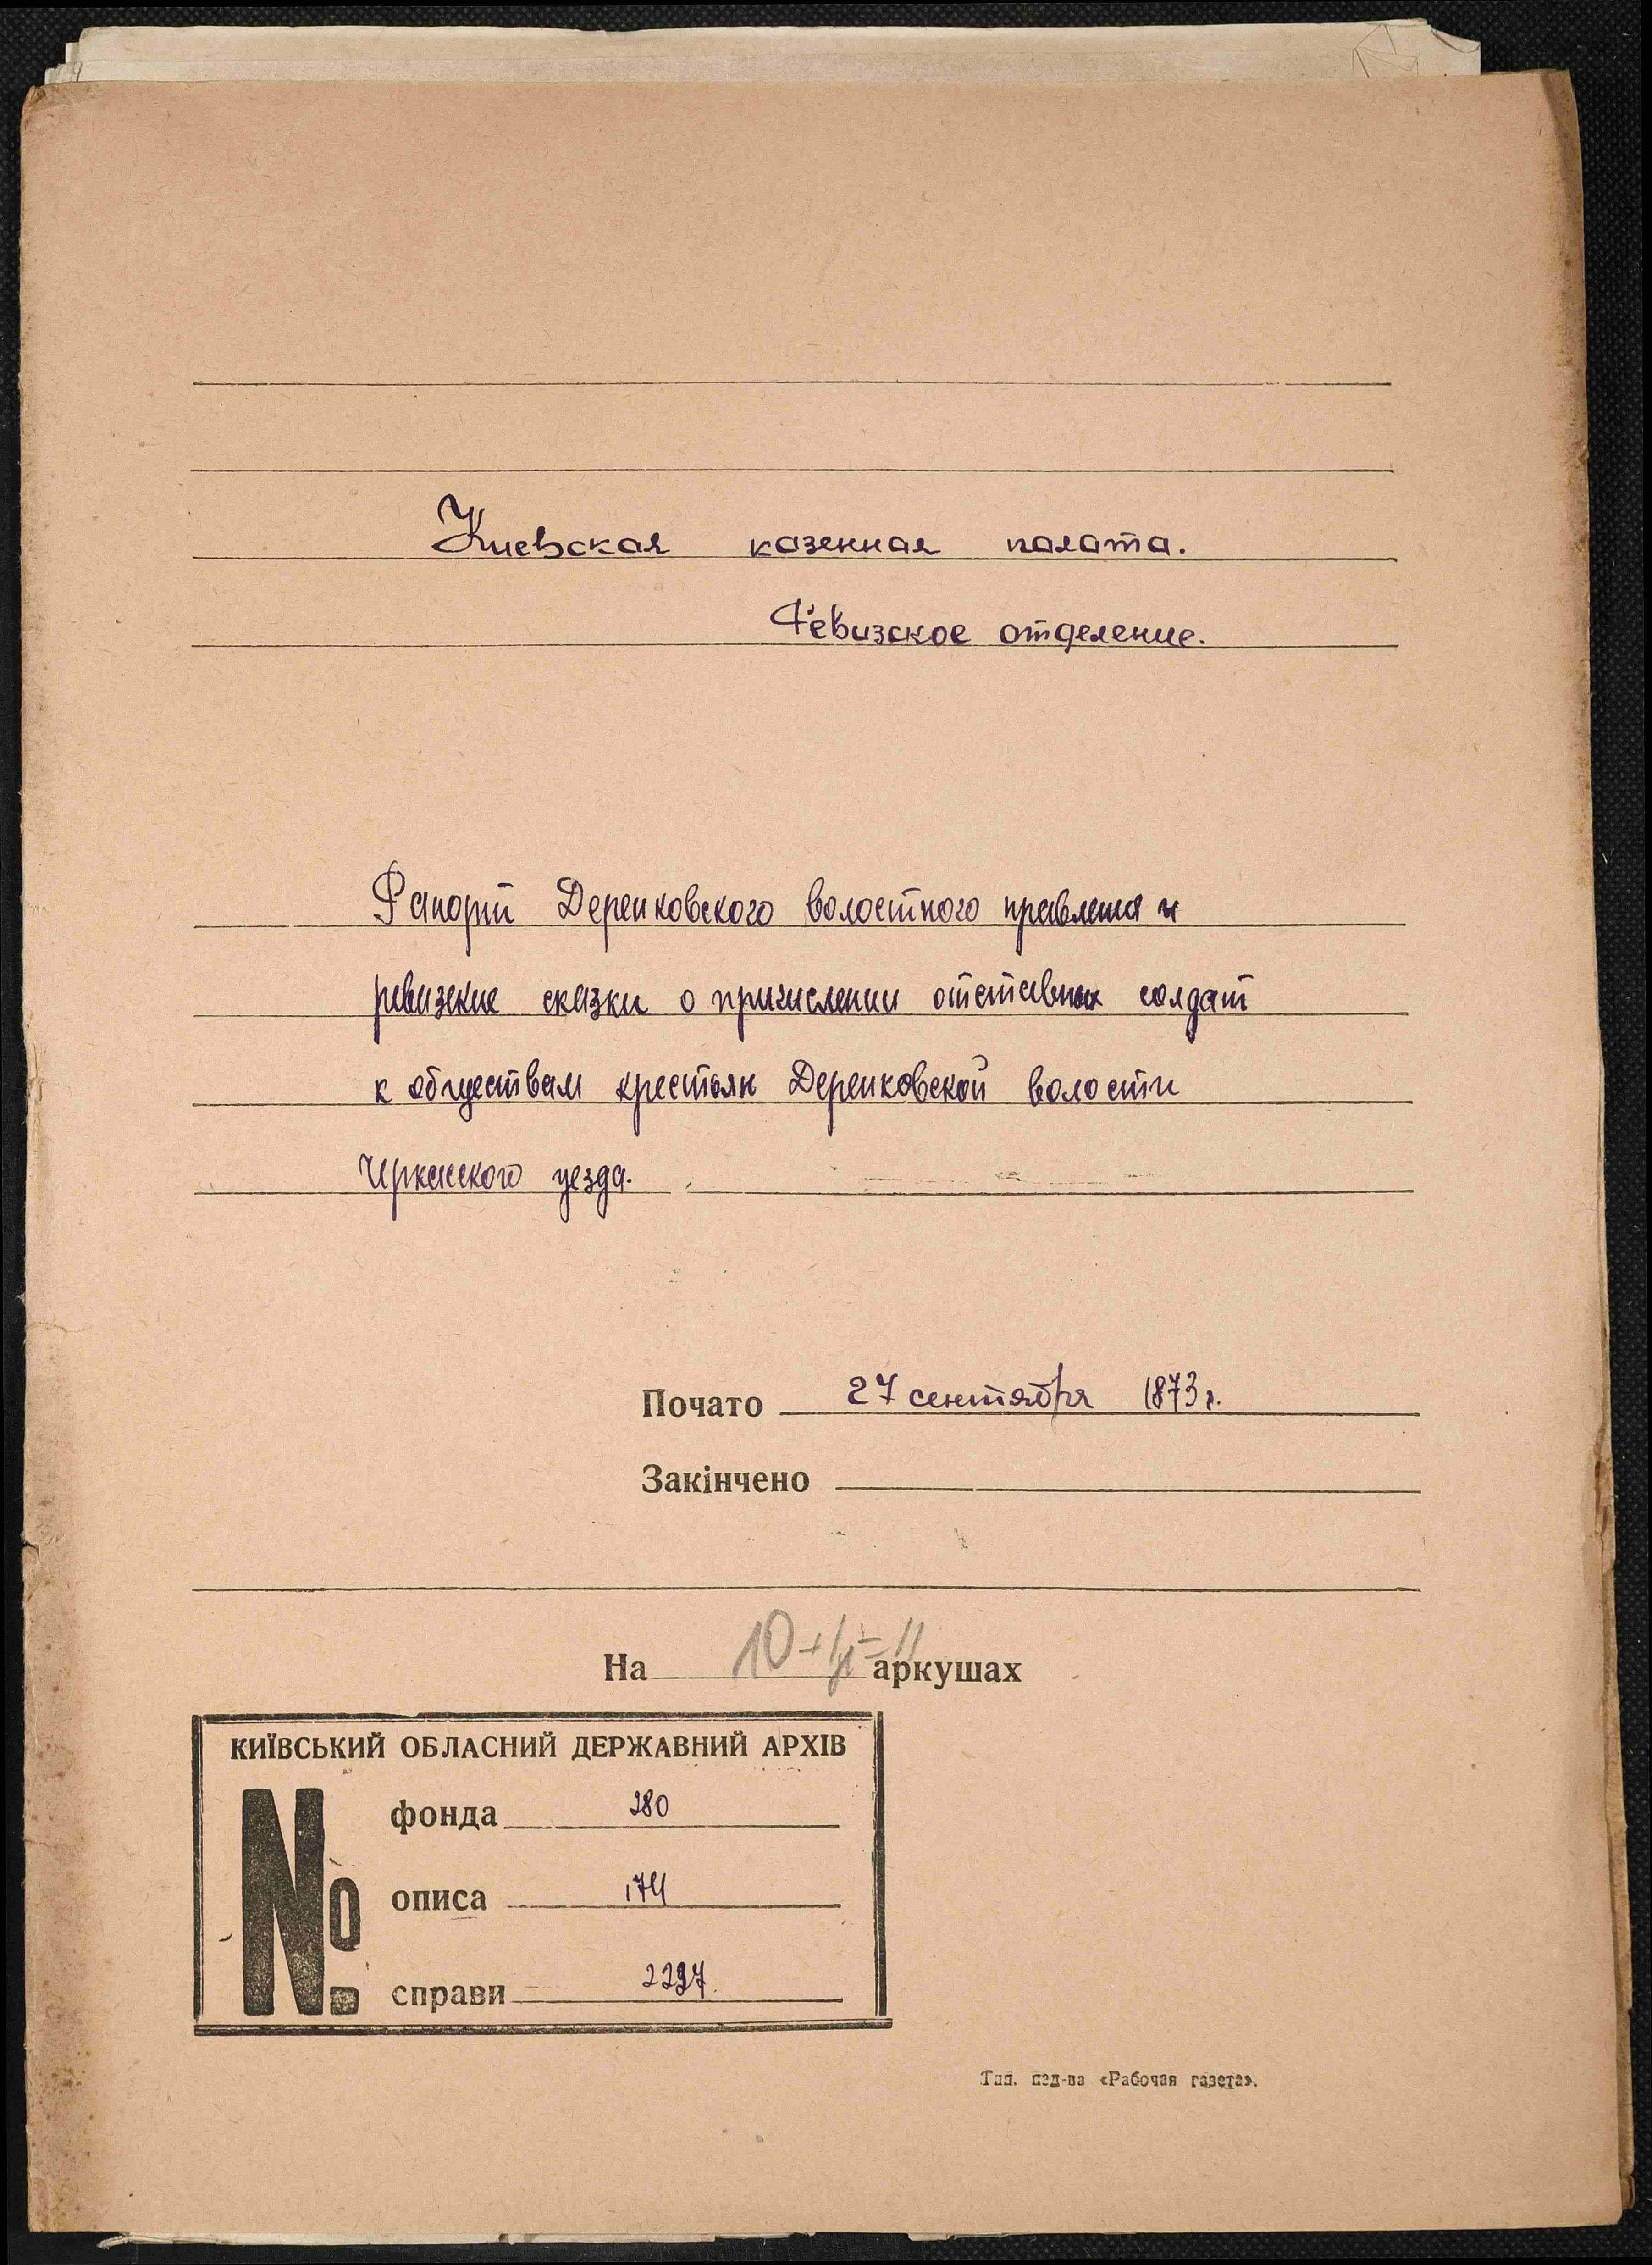 Киевская казенная палата.
Ревизское отделение.
Рапорт Деренковского волостного правления и
ревизские сказки о причислении отставных солдат
к обществам крестьян Деренковской волости
Черкасского уезда.
Почато 27 сентября 1873 г.
Закінчено
На 10+ =11 аркушах
КИЇВСЬКИЙ ОБЛАСНИЙ ДЕРЖАВНИЙ АРХІВ
№
фонда 280
описа 174
справи 2297.
Тип. изд-ва «Рабочая газета».